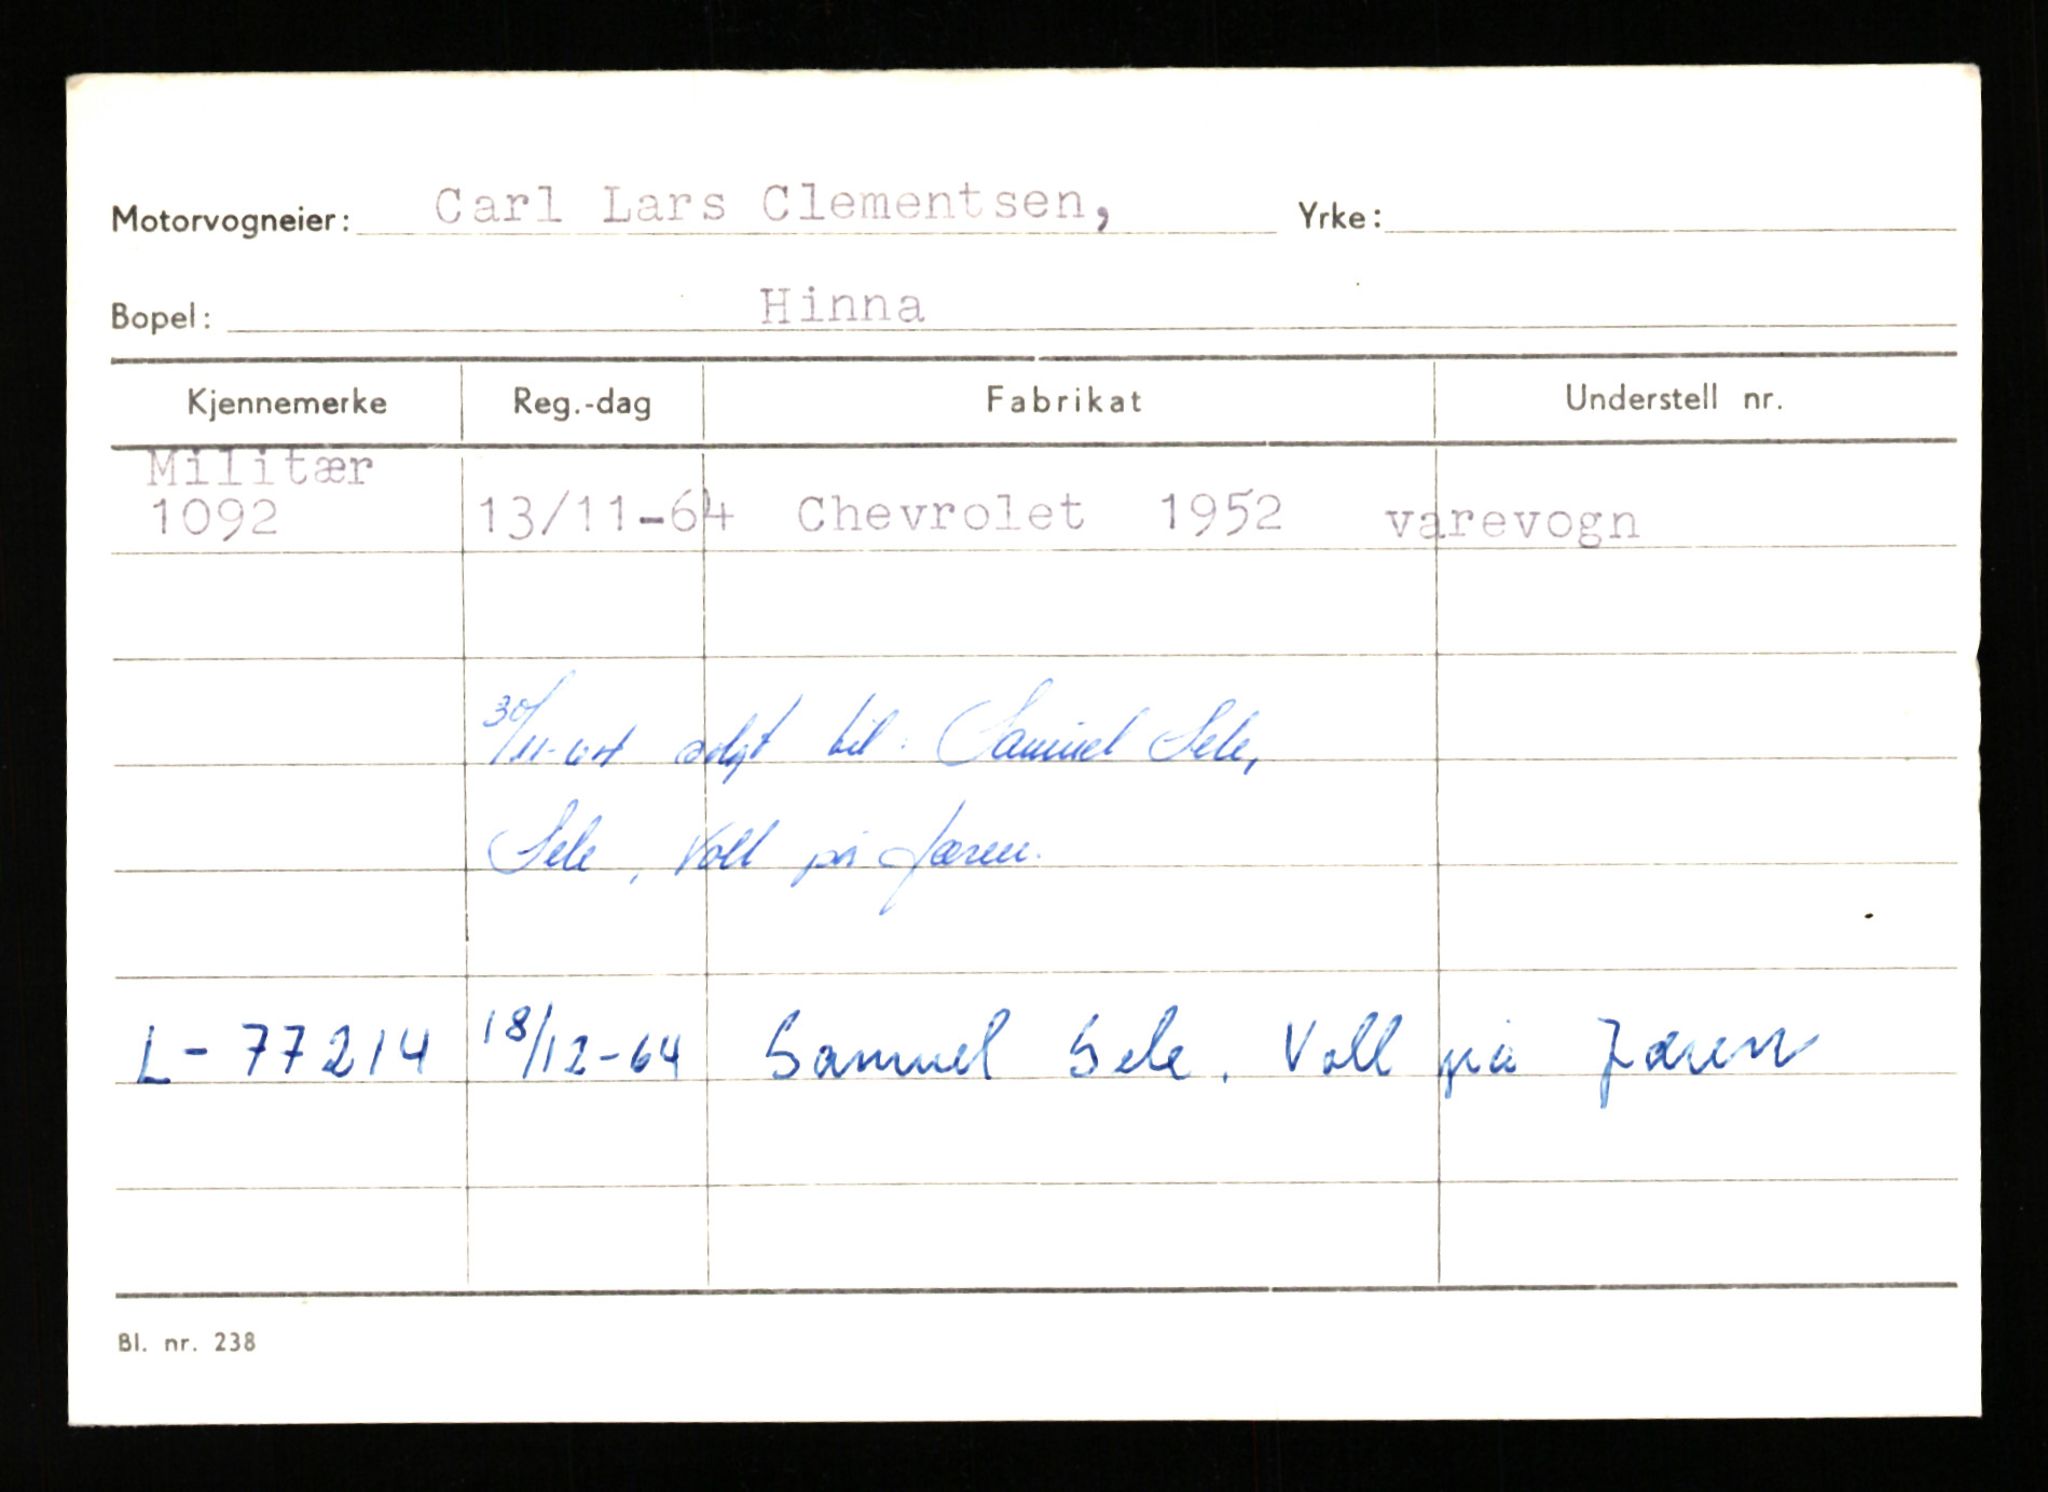 Motorvogneier: Carl Lars Clementsen, Yrke:
Bopel: Hinna
Kjennemerke Reg.-dag Fabrikat Understell nr.
Militær
1092 13/11-64 Chevrolet 1952 varevogn
30/11-64 solgt til: Samuel Sele,
Sele, Voll på Jæren.
L-77214 18/12-64 Samuel Sele. Voll på Jæren
Bl. nr. 238